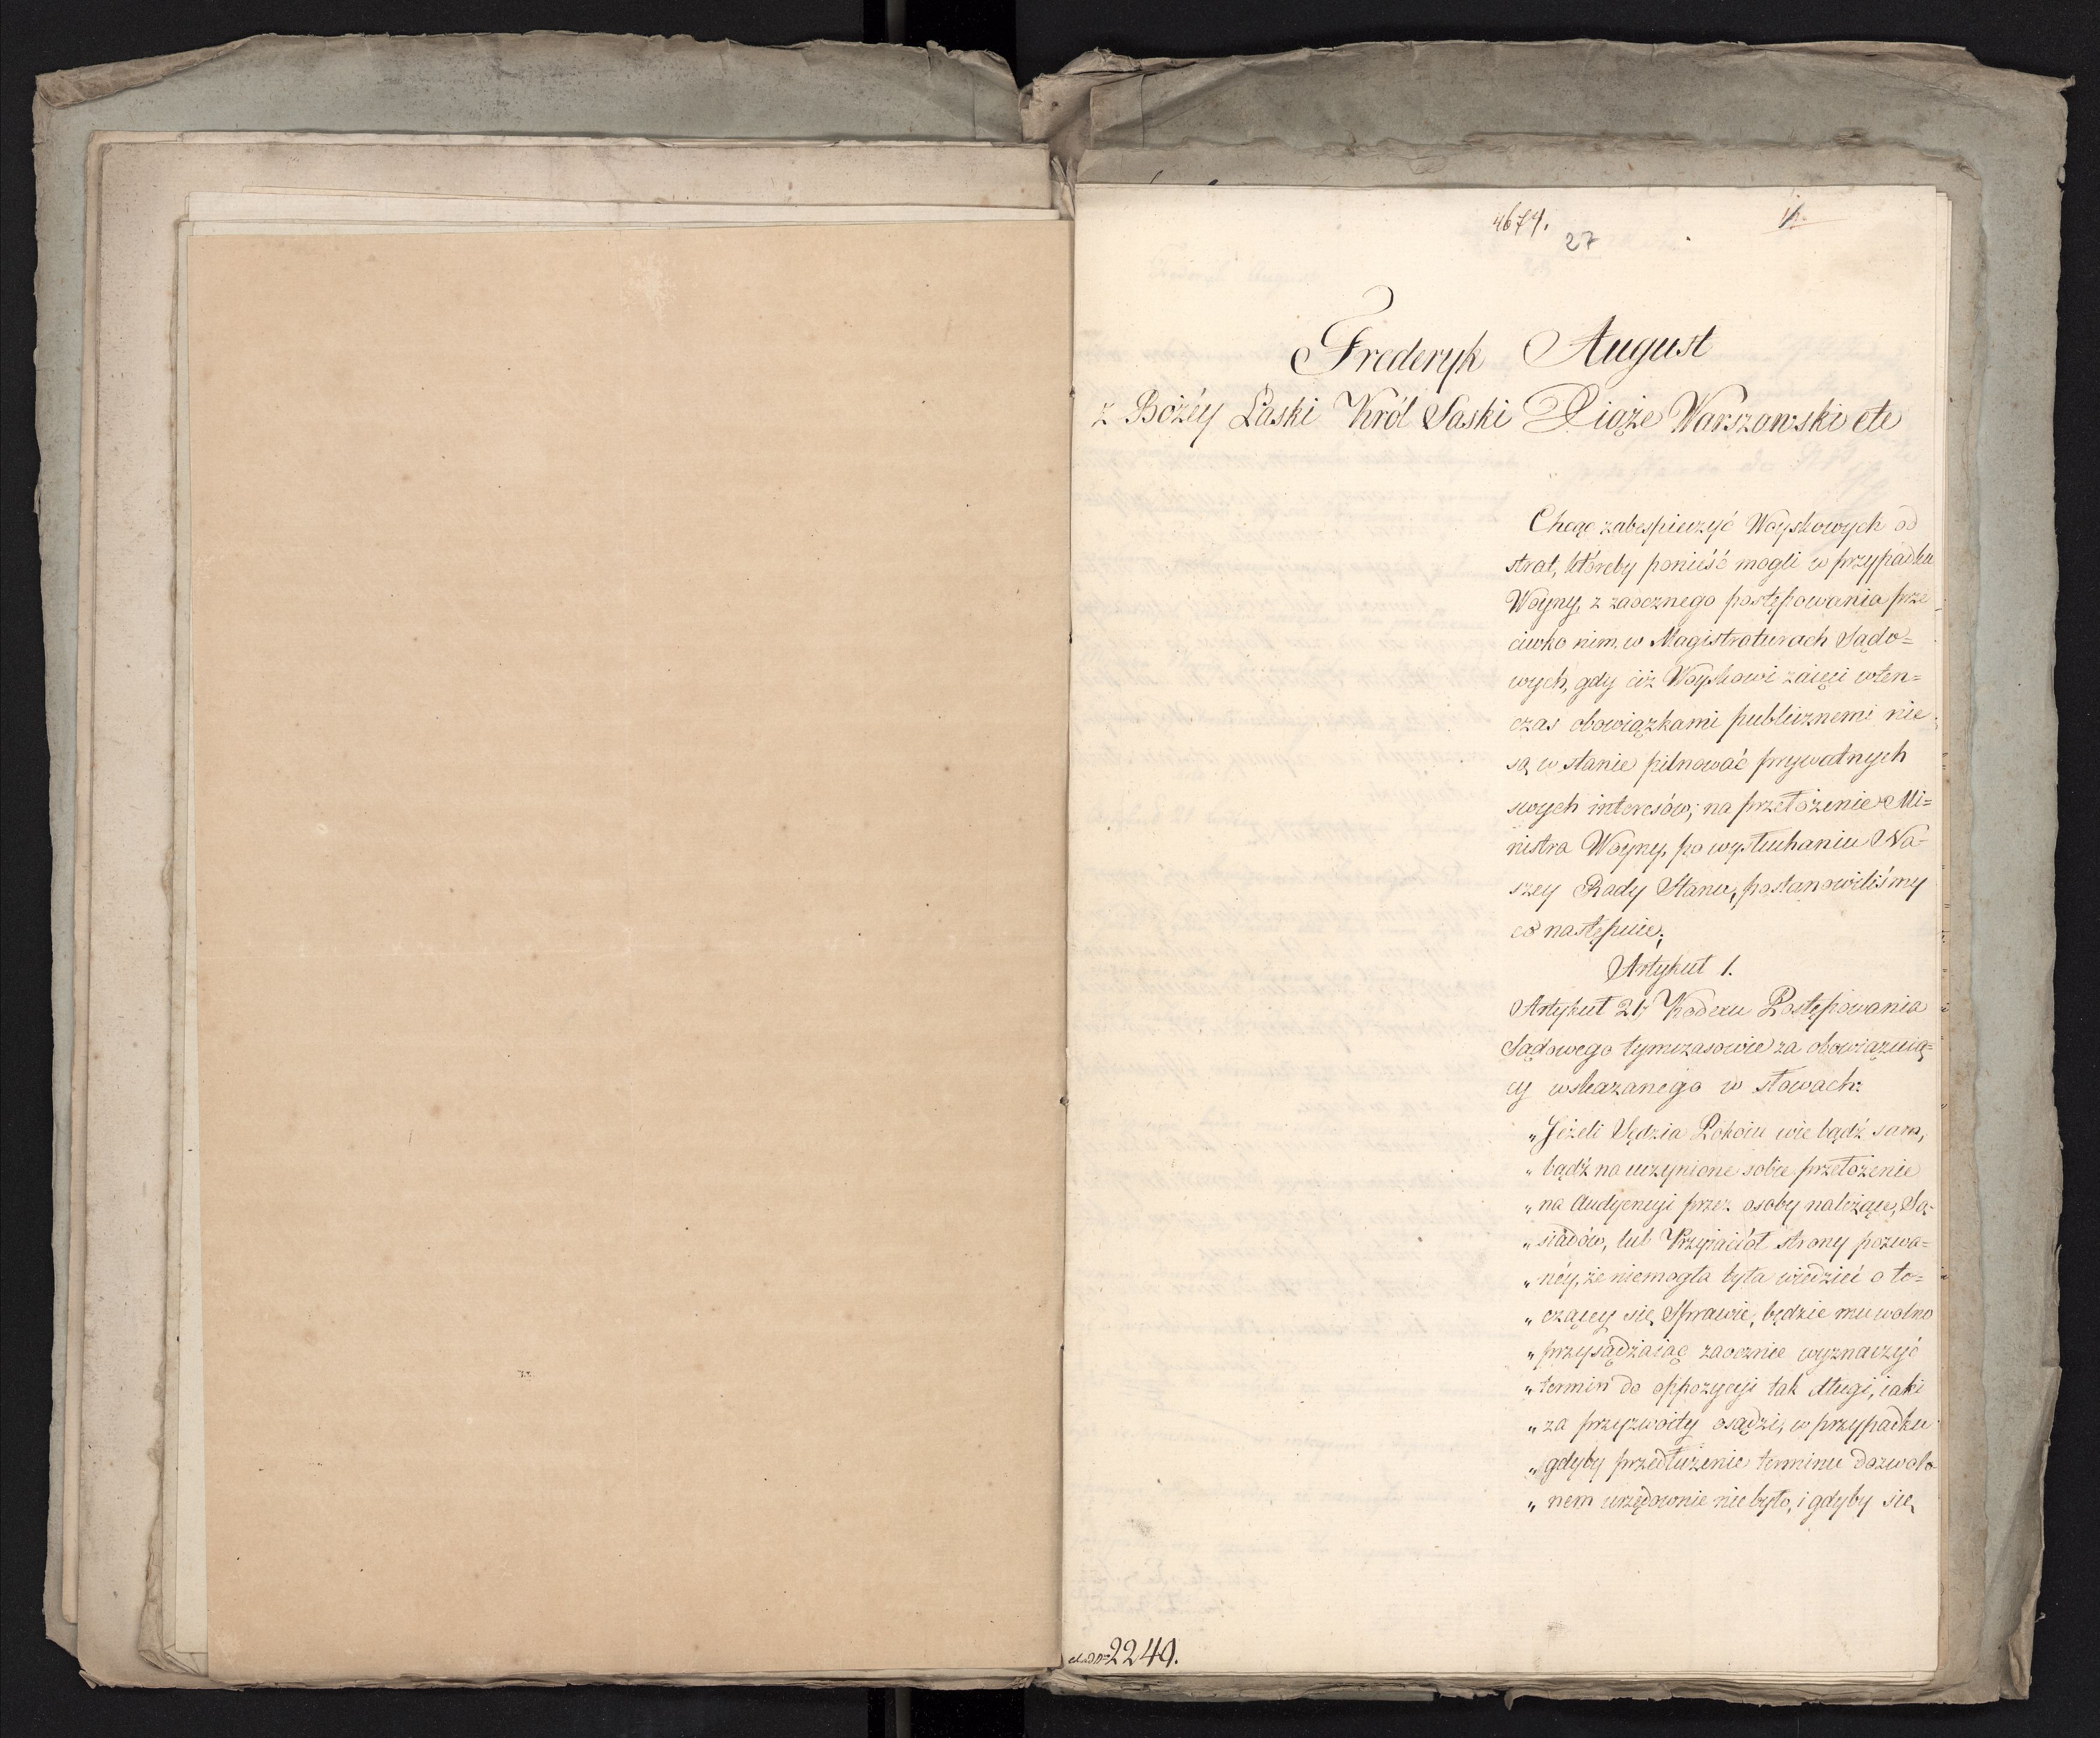 4674.
27
Frederyk August
z Bożéy Łaski Król Saski Xiąże Warszawski etc
Chcąc zabespieczyć Woyskowych od
strat, któreby ponieść mogli w przypadku
Woyny, z zaocznego postępowania prze
ciwko nim, w Magistraturach Sądo=
wych, gdy ciż Woyskowi zaięci wten=
czas obowiązkami publicznemi nie
są w stanie pilnować prywatnych
swych interesów; na przełożenie Mi=
nistra Woyny, po wysłuchaniu Na=
szey Rady Stanu, postanowiliśmy
co następuie;
Artykuł 1.
Artykuł 21, Kodexu Postępowania
Sądowego tymczasowie za obowiązuią=
cy wskazanego w słowach:
„Jeżeli Sędzia Pokoiu wie bądź sam,
„ bądź na uczynione sobie przełożenie
„ na Audyencyi przez osoby należące, Są=
„ siadów, lub Przyiaciół strony pozwa=
„ néy, że niemogła była wiedzieć o to=
„ czącey się Sprawie, będzie mu wolno
„ przysądzaiąc zaocznie wyznaczyć
„ termin do oppozycyi tak długi, iaki
„ za przyzwoity osądzi, w przypadku
„ gdyby przedłużenie terminu dozwolo
„ nem urzędownie nie było, i gdyby się
2249.